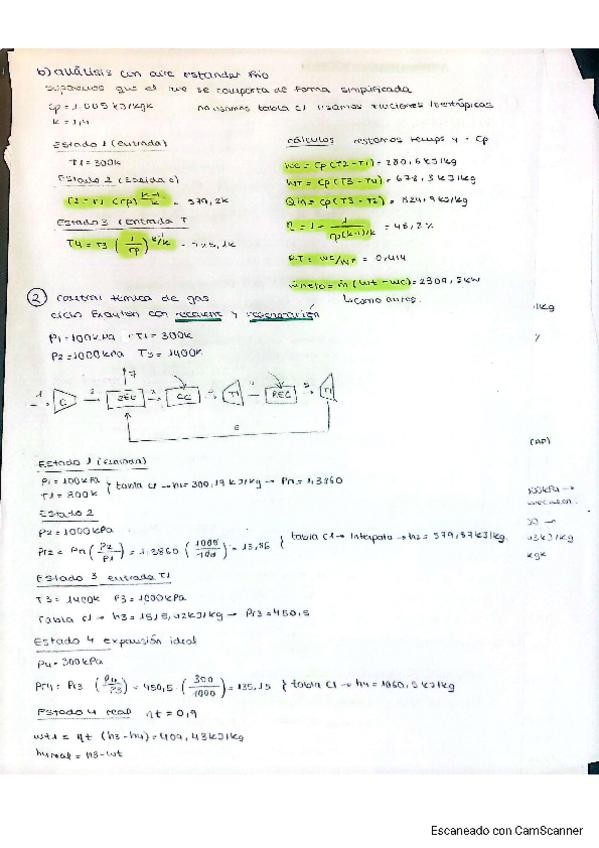 b) análisis con aire estandar frio
suponemos que el aire se comporta de forma simplificada
cp = 1.005 kJ/kgK no usamos tabla c1 usamos isentrópicas
k = 1,4
Estado 1 (entrada)
T1 = 300K
Estado 2 (salida c)
Estado 3 (entrada T
T4 = T3 (1/rp)^k-1/k
cálculos restamos temps y · cp
wc = cp(T2-T1) = 280,6 kJ/kg
WT = cp(T3-T4) = 678,3 kJ/kg
Qin = cp(T3-T2) = 824,9 kJ/kg
η = 1 - 1/rp(k-1)/k = 48,2%
R.T = wc/wT = 0,414
ẇneto = ṁ (wt-wc) = 2309,5 kW
↳ como antes.
② central térmica de gas
ciclo Brayton con recalent y regeneración
P1 = 100 kPa T1 = 300k
P2 = 1000 kPa T3 = 1400k
7
1 C 2 REG 3 CC T1 4 REC 5 T1
6
Estado 1 (entrada)
P1 = 100 kPa
T1 = 300K } tabla c1 → h1 = 300,19 kJ/kg → Pr1 = 1,3860
Estado 2
P2 = 1000 kPa
Pr2 = Pr1 (P2/P1) = 1,3860 (1000/100) = 13,86 { tabla C1 → Interpolo → h2 = 579,87 kJ/kg.
Estado 3 entrada T1
T3 = 1400k P3 = 1000 kPa
Tabla c1 → h3 = 1515,42 kJ/kg → Pr3 = 450,5
Estado 4 expansión ideal
P4 = 300 kPa
Pr4 = Pr3 (P4/P3) = 450,5 · (300/1000) = 135,15 } tabla C1 → h4 = 1060,5 kJ/kg
Estado 4 real ηt = 0,9
wt1 = ηt (h3-h4) = 409,43 kJ/kg
h4real = h3-wt
Escaneado con CamScanner